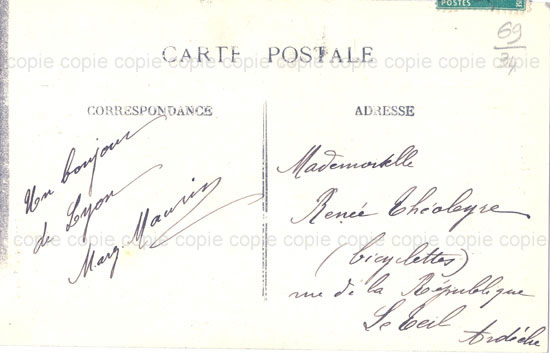 POSTES
69
34
CARTE POSTALE
copie copie copie copie copie copie copie copie copie copie
CORRESPONDANCE
ADRESSE
Un bonjour
de Lyon
Marg. Maurin
Mademoiselle
Renée Théoleyre
(bicyclettes)
rue de la République
Le Teil
Ardèche
copie copie copie copie copie copie copie copie copie copie
copie copie copie copie copie copie copie copie copie copie